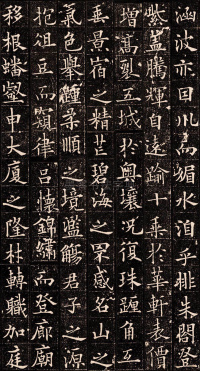 涵波亦因川而媚水洎乎排朱閣登
紫蓋騰輝自遠踰十乘於華軒表價
增高裂五城於奧壤況復珠躔角互
垂景宿之精芒碧海之罘感名山之
氣色舉踵柔順之境濫觴君子之源
抱俎豆而窺律呂懷錦繡而登廊廟
移根蟠壑申大廈之隆材轉職加庭